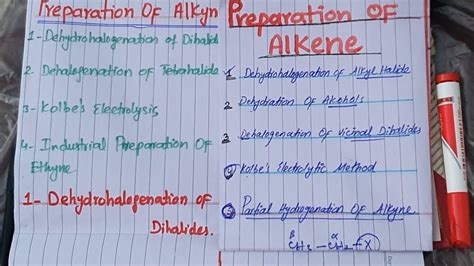 Preparation Of Alkyn
1- Dehydrohalogenation of Dihalide
2. Dehalogenation of Tetrahalide
3- Kolbe's Electrolysis
4- Industrial Preparation Of
Ethyne
1- Dehydrohalogenation of
Dihalides.
Preparation OF
Alkene
1 Dehydrohalogenation of Alkyl Halide
2 Dehydration Of Alcohols
3 Dehalogenation of Vicinal Dihalides
4 Kolbe's Electrolytic Method
5 Partial Hydrogenation Of Alkyne
β α
CH3 - CH2 - X